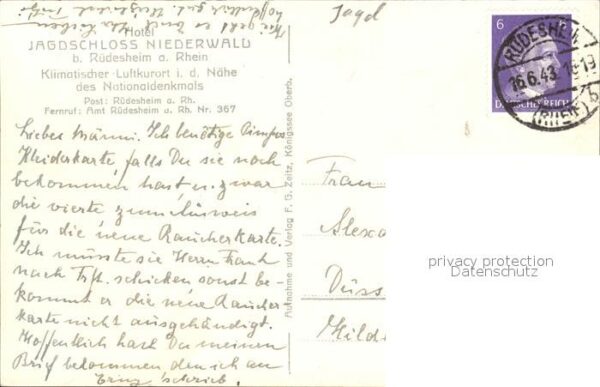 Jagd
Wie geht es Dir?
hoffentlich gut.
Hotel
JAGDSCHLOSS NIEDERWALD
b. Rüdesheim a. Rhein
Klimatischer Luftkurort i. d. Nähe
des Nationaldenkmals
Post: Rüdesheim a. Rh.
Fernruf: Amt Rüdesheim a. Rh. Nr. 367
Liebes Männi. Ich benötige
Kleiderkarte, falls Du sie noch
bekommen hast u. zwar
die vierte zum Ausweis
für die neue Raucherkarte.
Ich müsste sie Herrn Frank
nach schicken sonst be-
kommt er die neue Raucher
karte nicht ausgehändigt.
Hoffentlich hast Du meinen
Brief bekommen, den ich an
schrieb.
Aufnahme und Verlag F. G. Zeitz, Königssee Oberb.
6
DEUTSCHES REICH
RÜDESHEIM
16.6.43
(RHEIN)
b
Frau
Alexa
Düss
Hild
privacy protection
Datenschutz